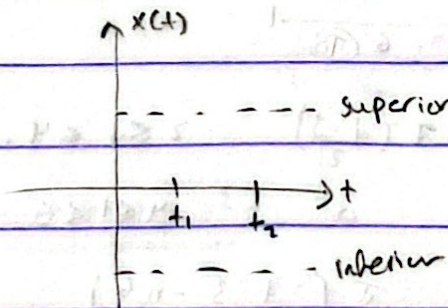 x(t)
superior
t
t₁ t₂
inferior